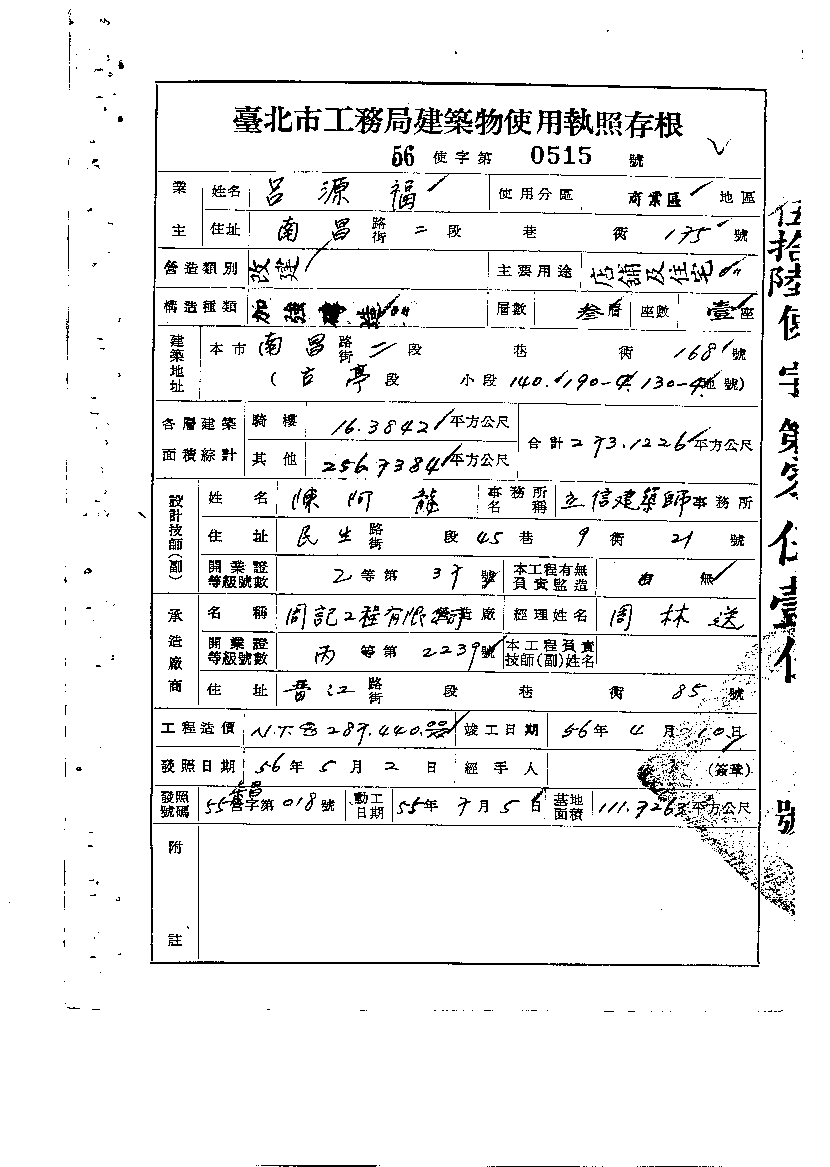 臺北市工務局建築物使用執照存根
56 使字第 0515 號
業主 姓名 呂源福 使用分區 商業區 地區
住址 南昌路街二段 巷 街 175 號
營造類別 改建 主要用途 店舖及住宅
構造種類 加強磚造 層數 叁層 座數 壹座
建築地址 本市南昌路街二段 巷 街 168 號
(古亭段 小段 140.190-4.130-4 地號)
各層建築面積綜計 騎樓 16.3842 平方公尺 合計 273.1226 平方公尺
其他 256.7384 平方公尺
設計技師(副) 姓名 陳阿龍 事務所名稱 立信建築師事務所
住址 民生路街 段 45 巷 9 街 21 號
開業證等級號數 乙等第 37 號 本工程有無負責監造 有 無
承造廠商 名稱 周記工程有限 營造廠 經理姓名 周林送
開業證等級號數 丙等第 2239 號 本工程負責技師(副)姓名
住址 晋江路街 段 巷 街 85 號
工程造價 N.T.$ 287.440.00 竣工日期 56年4月10日
發照日期 56年5月2日 經手人 (簽章)
發照號碼 55營字第018號 動工日期 55年7月5日 基地面積 111.7263 平方公尺
附註
伍拾陸使字第零伍壹伍號